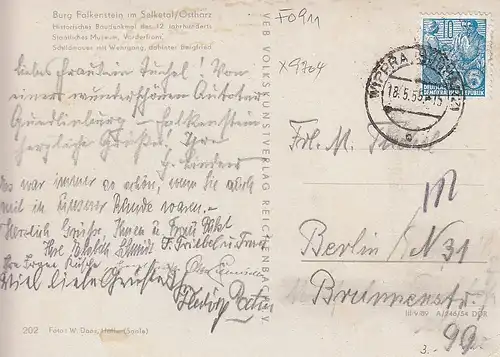 Burg Falkenstein im Selketal/Ostharz
Historisches Baudenkmal des 12. Jahrhunderts
Staatliches Museum, Vorderfront
Schildmauer mit Wehrgang, dahinter Bergfried
F0911
x9704
VEB VOLKSKUNSTVERLAG REICHENBACH I. V.
10
5
DEUTSCHE DEMOKRATISCHE REPUBLIK
WIPPRA
18.5.5
Liebes Fräulein Tuchel! Von
einer wunderschönen Autotour
Quedlinburg – Falkenstein
herzliche Grüße! Ihre
Es war immer so schön, wenn Sie auch
mit in unserer Runde waren. –
Herzlich Grüsse, Ihnen u. Frau
Ihre Schmidt
Viel liebe Grüße
Hedwig
Frl. M.
Berlin N 31
Brunnenstr.
99
III/9/89 A/746/54 DDR
202 Foto: W. Danz, Halle (Saale)
3.-